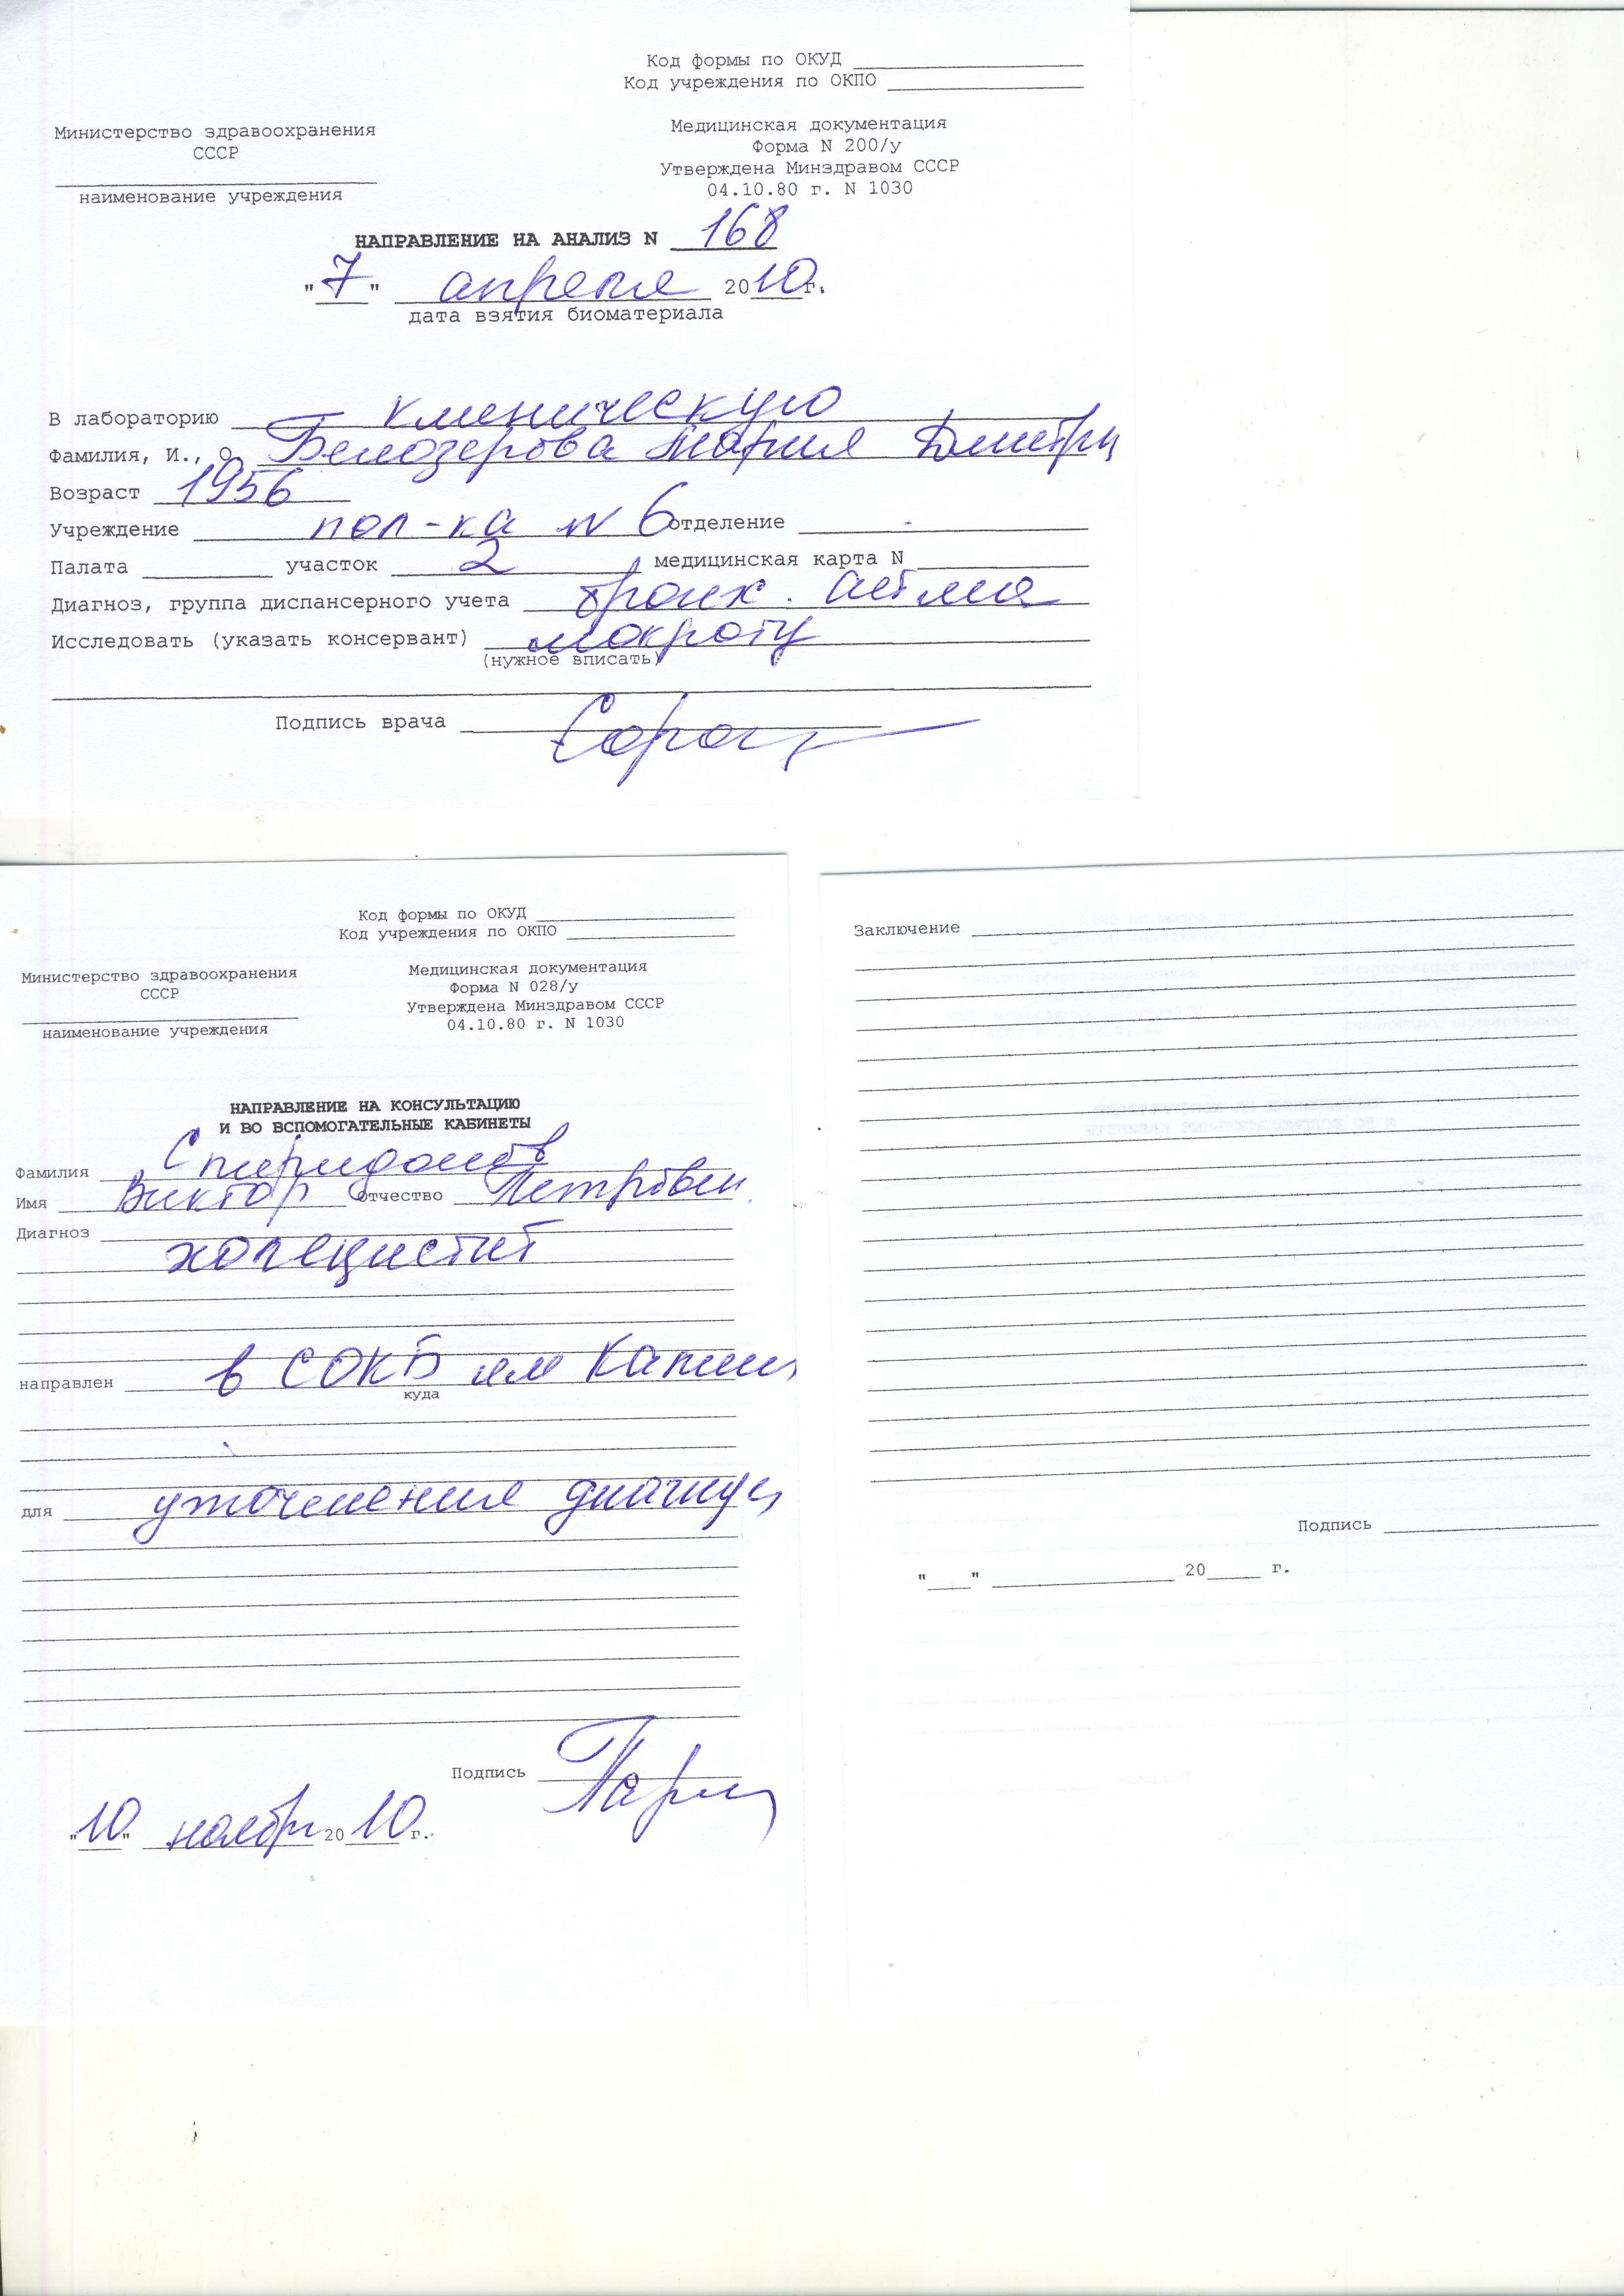 Код формы по ОКУД
Код учреждения по ОКПО
Министерство здравоохранения
СССР
наименование учреждения
Медицинская документация
Форма N 200/у
Утверждена Минздравом СССР
04.10.80 г. N 1030
НАПРАВЛЕНИЕ НА АНАЛИЗ N 168
"7" апреля 2010г.
дата взятия биоматериала
В лабораторию клиническую
Фамилия, И., О. Белозерова Мария Дмитри
Возраст 1956
Учреждение пол-ка N 6 отделение -
Палата участок 2 медицинская карта N
Диагноз, группа диспансерного учета бронх. астма
Исследовать (указать консервант) мокроту
(нужное вписать)
Подпись врача
Код формы по ОКУД
Код учреждения по ОКПО
Министерство здравоохранения
СССР
наименование учреждения
Медицинская документация
Форма N 028/у
Утверждена Минздравом СССР
04.10.80 г. N 1030
НАПРАВЛЕНИЕ НА КОНСУЛЬТАЦИЮ
И ВО ВСПОМОГАТЕЛЬНЫЕ КАБИНЕТЫ
Фамилия Спиридонов
Имя Виктор Отчество Петрович
Диагноз
холецистит
направлен в СОКБ им Калин
куда
для уточнения диагноз
Подпись
"10" ноябр 2010 г.
Заключение
Подпись
"___" 20 г.